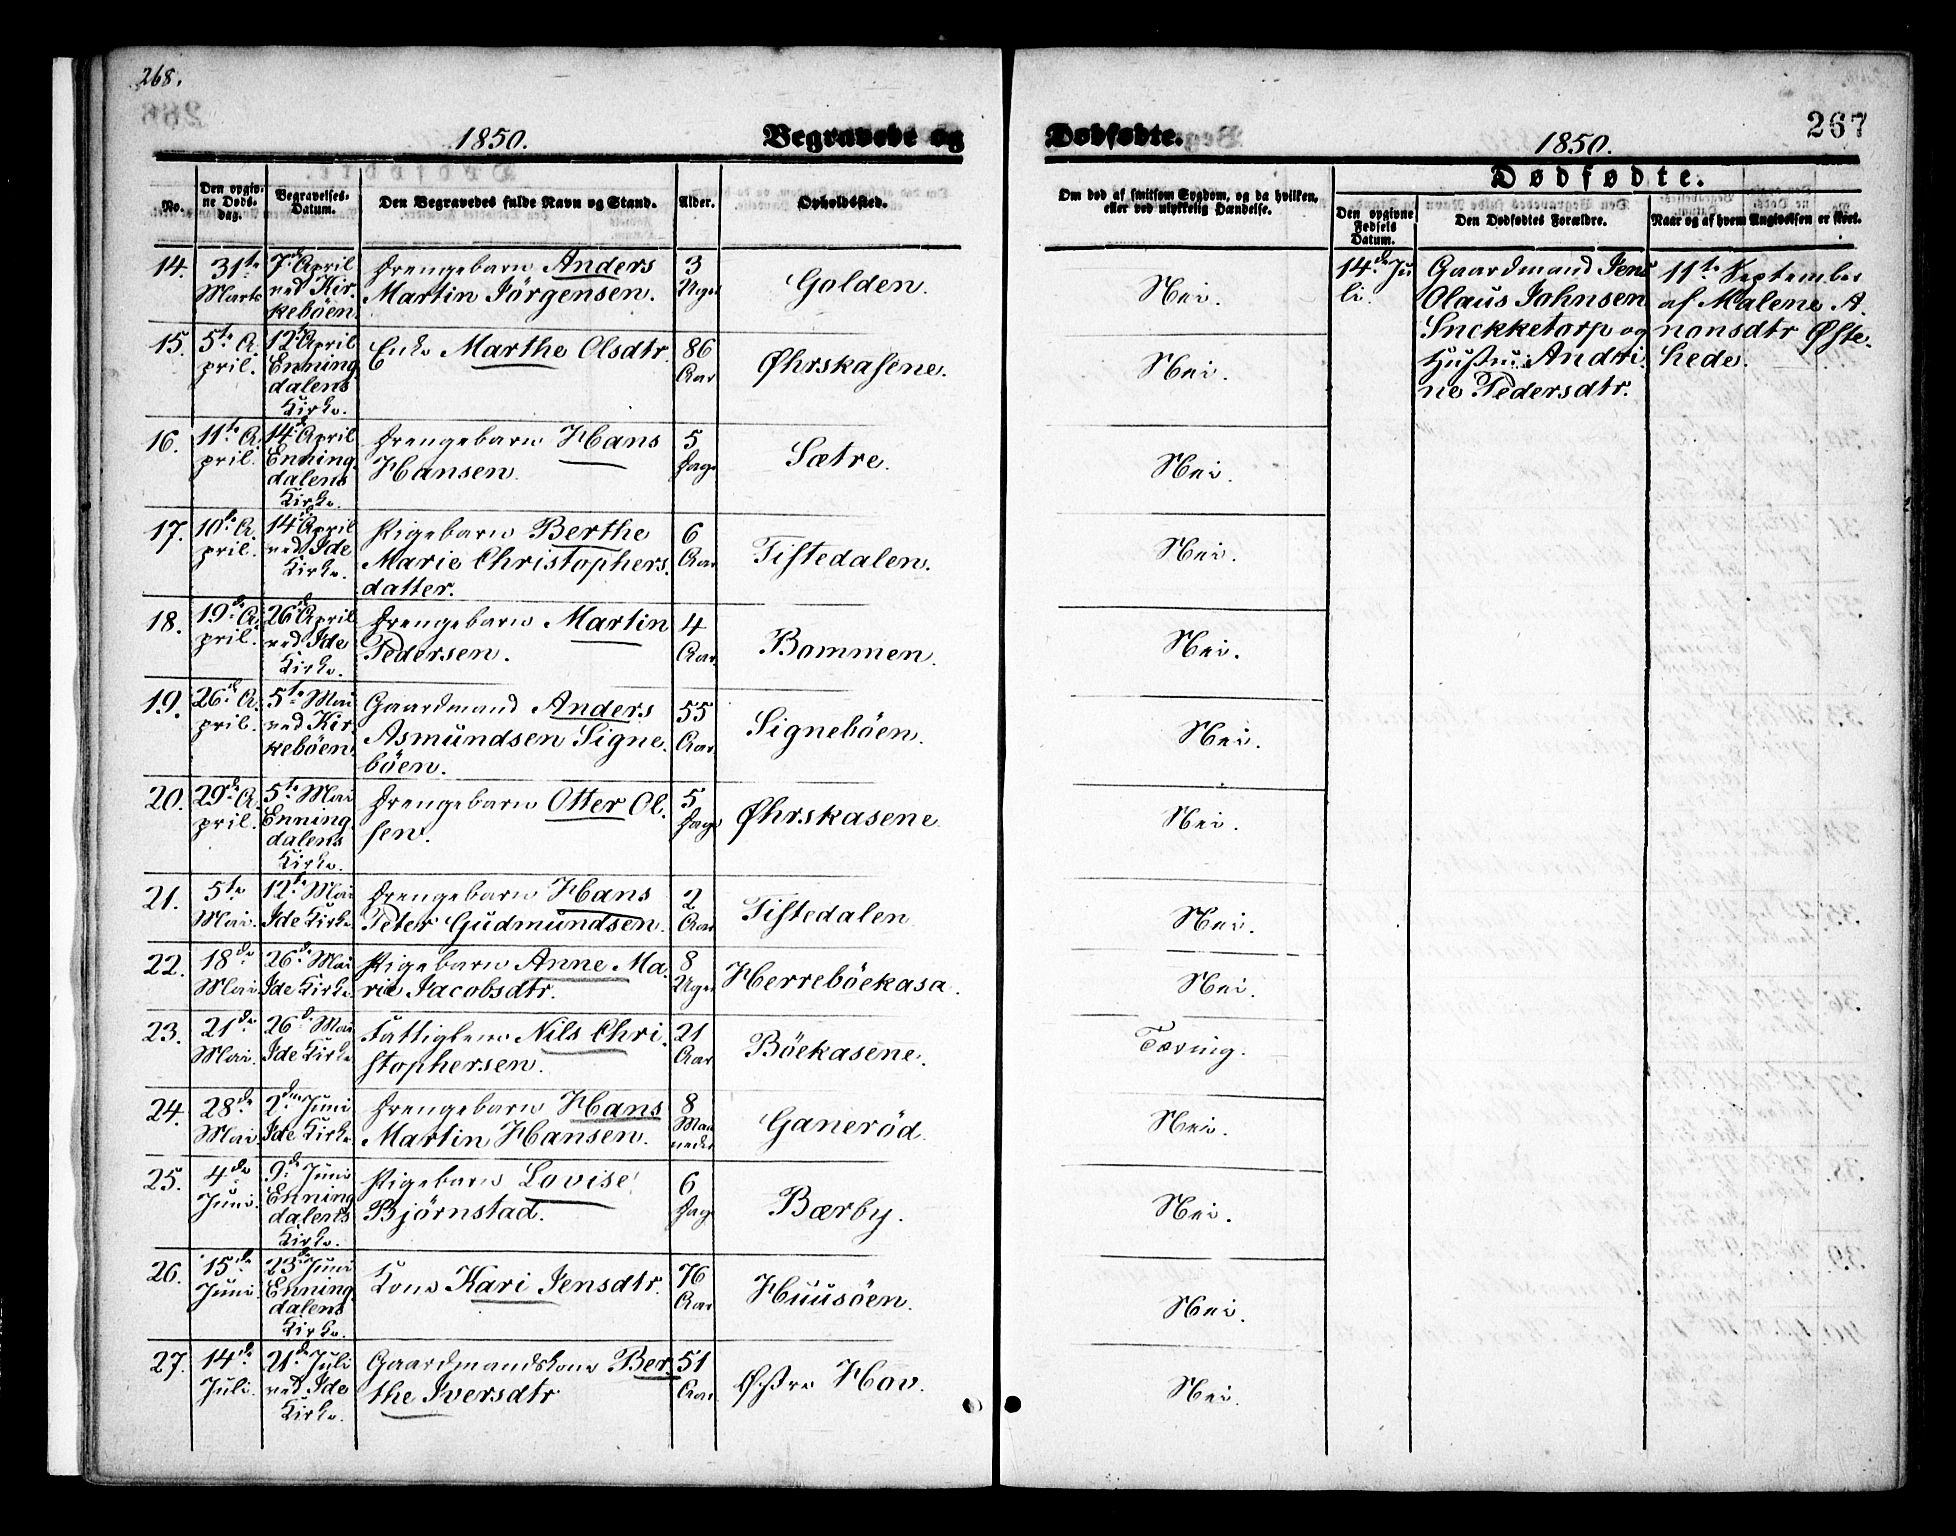 268.
1850.
Begravede og
No.
Den opgiv-
ne Døds-
dag.
Begravelses-
Datum.
Den Begravedes fulde Navn og Stand.
Alder.
Opholdssted.
14.
31te
Marts
7de April
ved Kir-
kebøen.
Drengebarn Anders
Martin Jörgensen.
3
Uger
Golden.
15.
5te A-
pril.
12te April
Enning-
dalens
Kirke.
Enke Marthe Olsdtr.
86
Aar
Øhrskasene.
16.
11te A-
pril.
14de April
Enning-
dalens
Kirke.
Drengebarn Hans
Hansen.
5
Dage
Sætre.
17.
10de A-
pril.
14de April
ved Ide
Kirke.
Pigebarn Berthe
Marie Christophers-
datter.
6
Aar
Tistedalen.
18.
19de A-
pril.
26de April
ved Ide
Kirke.
Drengebarn Martin
Pedersen.
4
Aar
Bommen.
19.
26de A-
pril.
5te Mai
ved Kir-
kebøen.
Gaardmand Anders
Asmundsen Signe-
böen.
55
Aar
Signeböen.
20.
29de A-
pril.
5te Mai
Enning-
dalens
Kirke.
Drengebarn Otter Ol-
sen.
5
Dage
Øhrskasene
21.
5te
Mai.
12te Mai
Ide Kirke.
Drengebarn Hans
Peter Gudmundsen.
2
Aar
Tistedalen
22.
18de
Mai
26de Mai
Ide Kirke.
Pigebarn Anne Ma-
rie Jacobsdtr.
8
Uger
Herreböekasa.
23.
21de
Mai.
26de Mai
Ide Kirke
Fattiglem Nils Chri-
stophersen.
21
Aar
Böekasene.
24.
28de
Mai.
2den Juni
Ide Kirke.
Drengebarn Hans
Martin Hansen.
8
Maa-
neder
Ganeröd.
25.
4de
Juni.
9de Juni
Enning-
dalens
Kirke.
Pigebarn Lovise
Björnstad.
6
Dage
Bærby.
26.
15de
Juni
23de Juni
Enning-
dalens
Kirke.
Kone Kari Jensdtr.
76
Aar
Huusöen.
27.
14de
Juli.
21de Juli
ved Ide
Kirke.
Gaardmandskone Ber-
the Iversdtr
51
Aar
Østre Hov.
267
Dødfødte.
1850.
Om død af smitsom Sygdom, og da hvilken,
eller ved ulykkelig Hændelse.
Dødfødte.
Den opgivne
Fødsels
Datum.
Den Dødfødtes Forældre.
Naar og af hvem Angivelsen er skeet.
Nei.
Nei.
Nei.
Nei.
Nei.
Nei.
Nei.
Nei.
Nei.
Tæring.
Nei.
Nei.
Nei.
Nei.
14de Ju-
li.
Gaardmand Jens
Olaus Johnsen
Snekketorp og
Hustru Andri-
ne Pedersdtr.
11te September
af Malene A-
nonsdtr Øste-
hede.